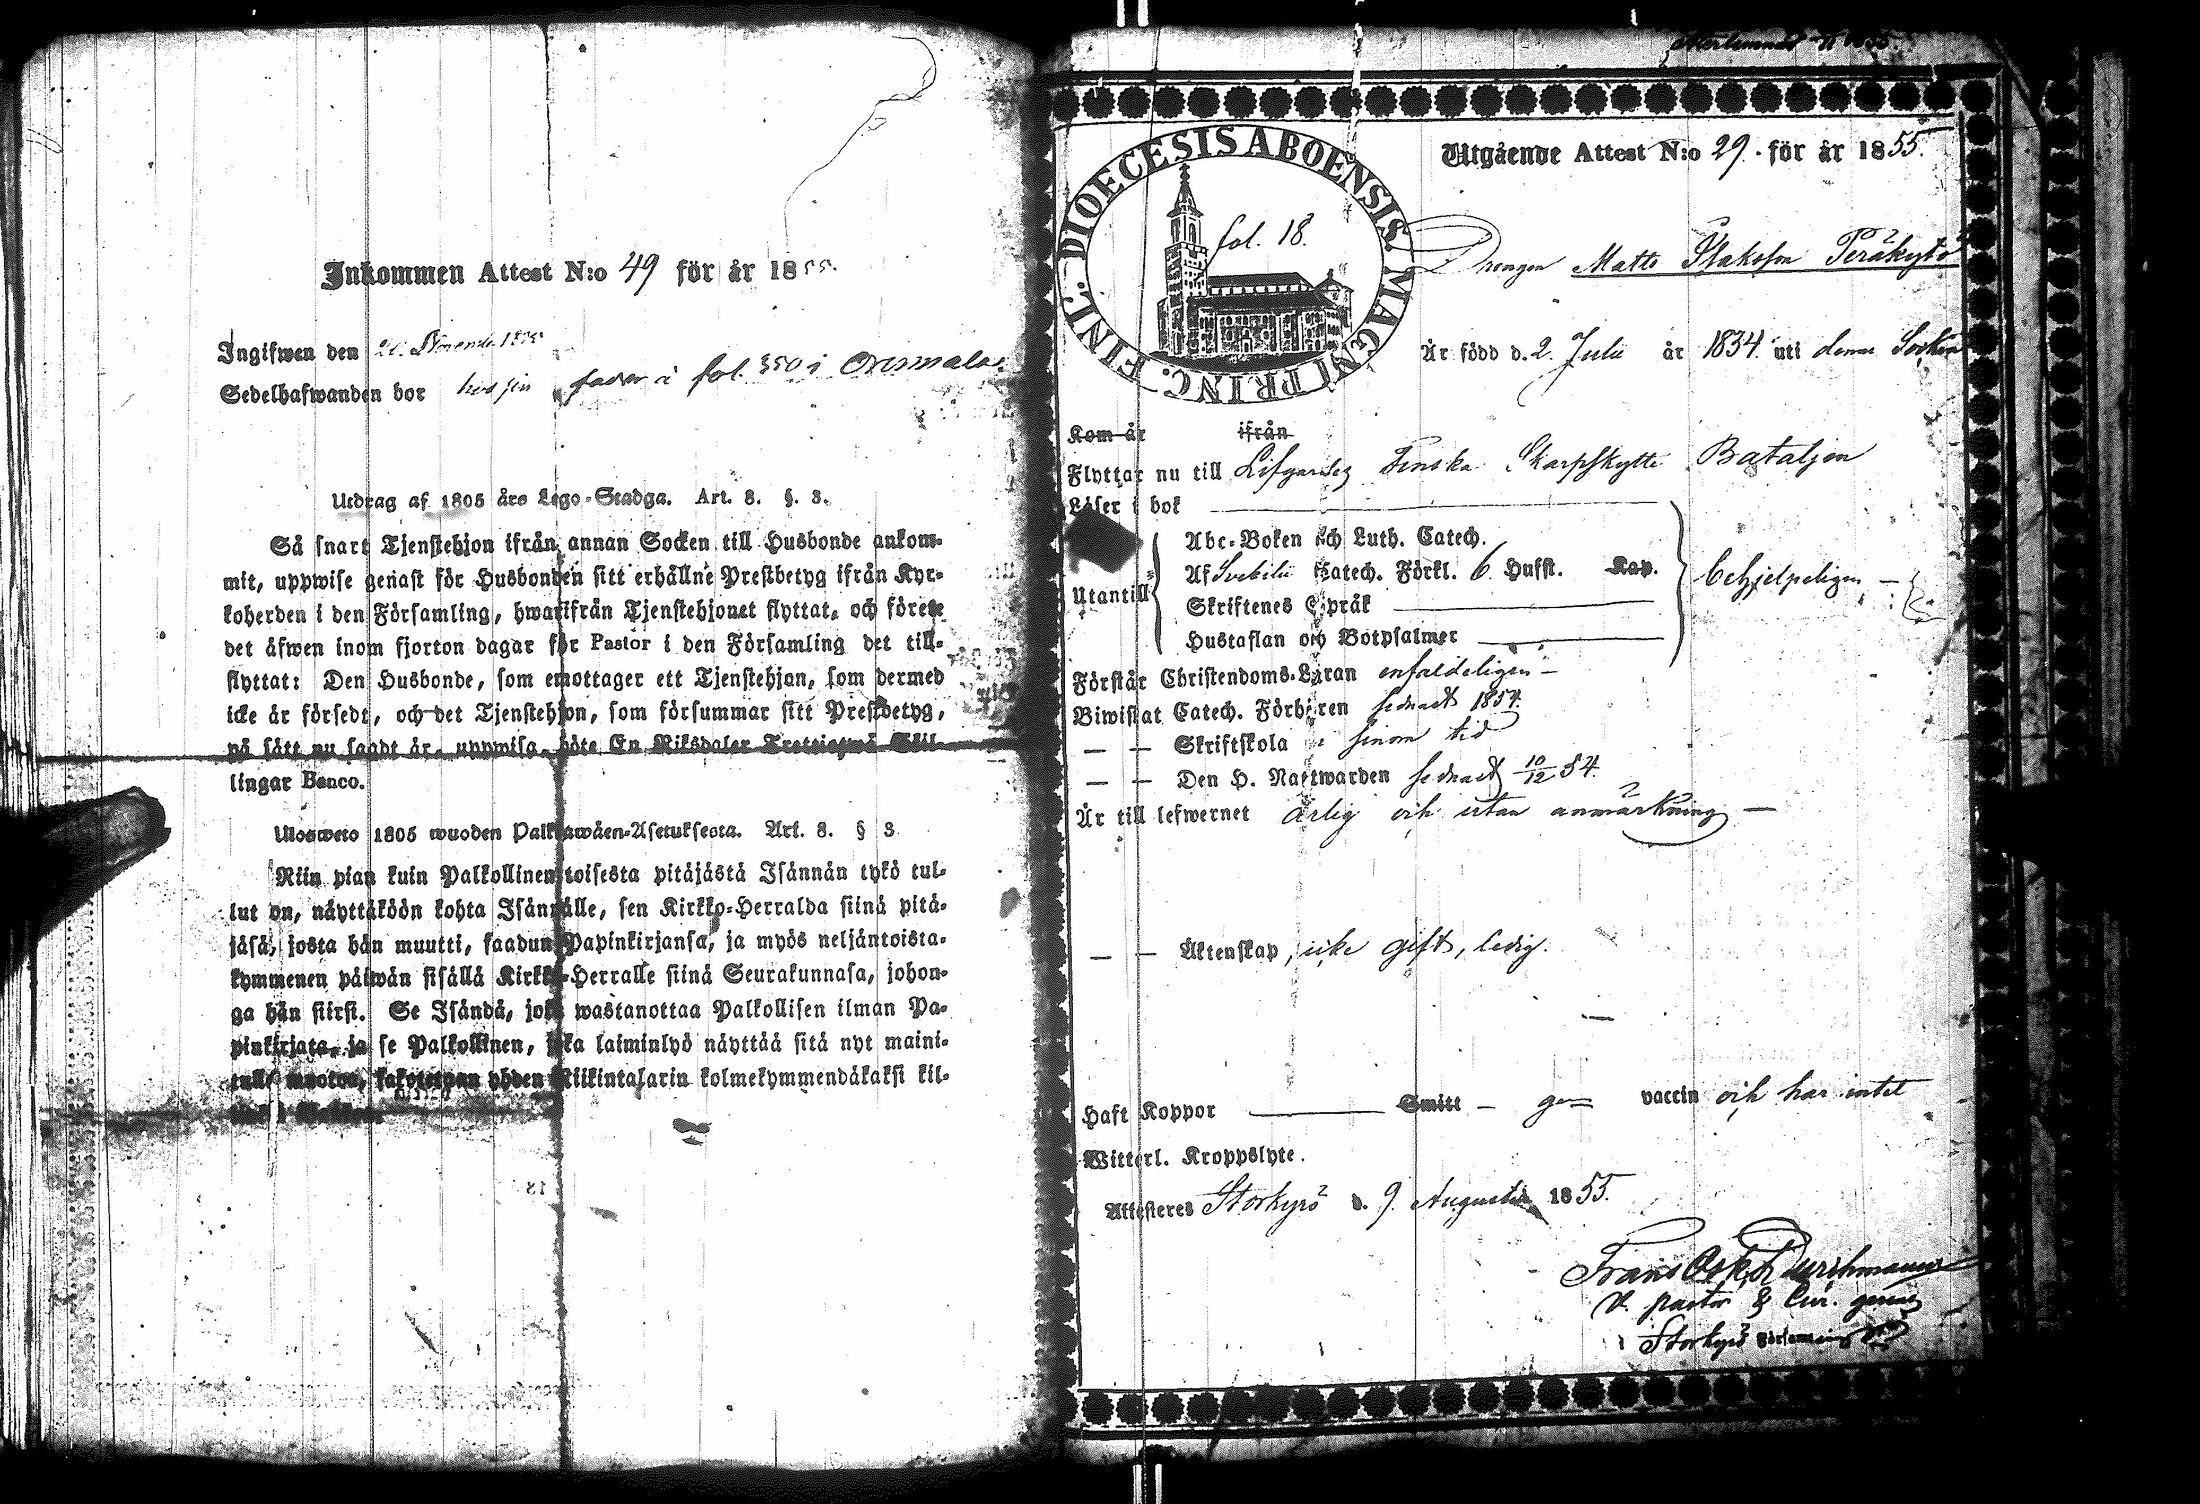 Inkommen Attest N:o 49 för år 1855.
Ingifwen den
Sedelhafwanden bor hos sin fader å fol. 350 i Orismala.
Utdrag af 1805 års Lego-Stadga. Art. 8. §. 3.
Så snart Tjenstehjon ifrån annan Socken till Husbonde ankom-
mit, uppwise genast för Husbonden sitt erhållne Prestbetyg ifrån Kyr-
koherden i den Församling, hwarifrån Tjenstehjonet flyttat, och förete
det äfwen inom fjorton dagar för Pastor i den Församling det till-
flyttat: Den Husbonde, som emottager ett Tjenstehjon, som dermed
icke är försedt, och det Tjenstehjon, som försummar sitt Prestbetyg,
på sätt nu sagdt är, uppwisa, böte En Riksdaler Trettiotwå Skil-
lingar Banco.
Ulosweto 1805 wuoden Palkkawäen-Asetuksesta. Art. 8. § 3
Niin pian kuin Palkollinen toisesta pitäjästä Isännän tykö tul-
lut on, näyttäköön kohta Isännälle, sen Kirkko-Herralda siinä pitä-
jäsä, josta hän muutti, saadun Papinkirjansa, ja myös neljäntoista-
kymmenen päiwän sisällä Kirkko-Herralle siinä Seurakunnasa, johon-
ga hän siirsi. Se Isändä, joka wastanottaa Palkollisen ilman Pa-
pinkirjata, ja se Palkollinen, joka laiminlyö näyttää sitä nyt maini-
tulla muotoa, yhden Riikintalarin kolmekymmendäkaksi kil-
DIOECESIS ABOENSIS MAGNI PRINC. FINL.
fol. 18.
Utgående Attest N:o 29. för år 1855.
Drengen Matts Isaksson Peräkytö
Är född d. 2. Julii år 1834. uti denna Socken
Kom år ifrån
Flyttar nu till Lifgardes Finska Skarpskytte Bataljon
Läser i bok
Utantill
Abc-Boken och Luth. Catech.
Af Svebilii Catech. Förkl. 6. Hufst. Kap.
Skriftenes Språk
Hustaflan och Botpsalmer
behjelpeligen —
Förstår Christendoms-Läran enfaldeligen —
Biwistat Catech. Förhören sednast 1854.
— — Skriftskola i sinom tid
— — Den H. Nattwarden sednast 10/12 54.
Är till lefwernet ärlig och utan anmärkning —
— — Äktenskap, icke gift, ledig.
Haft Koppor — Smitt — gen vaccin och har intet
Witterl. Kroppslyte.
Attesteres Storkyrö d. 9. Augusti 1855.
Frans Osk. Durchman
V. pastor & Cur. gerens
Storkyrö